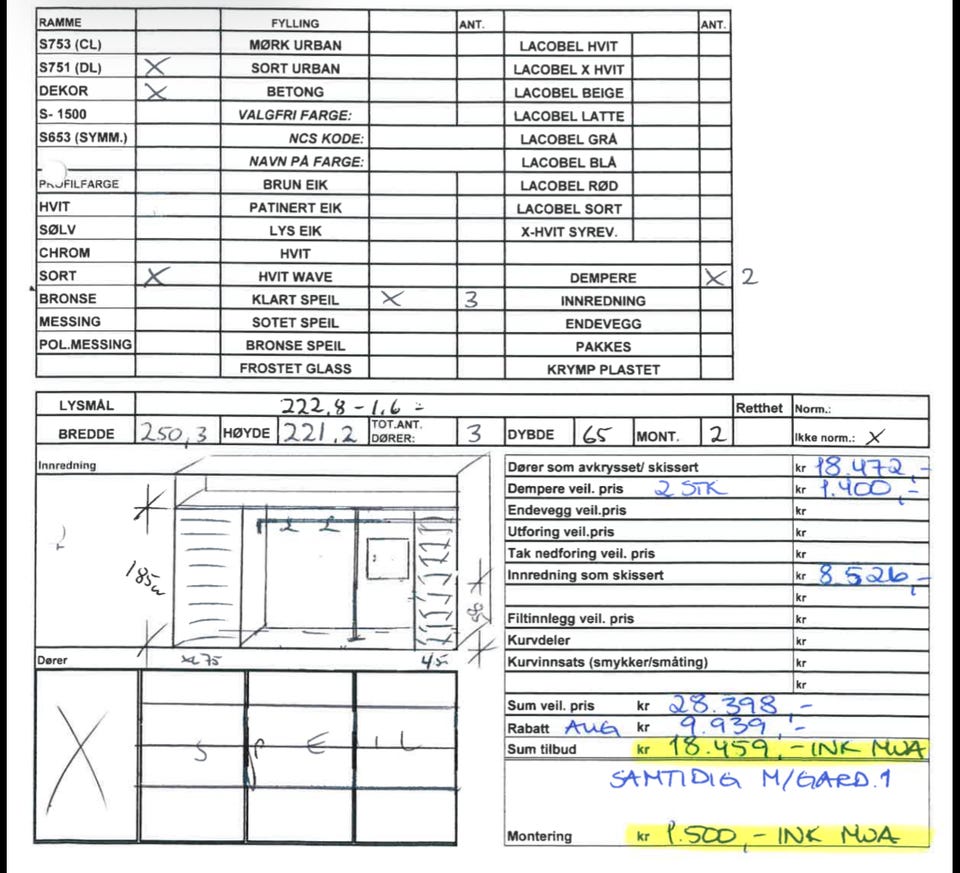 RAMME FYLLING ANT. ANT.
S753 (CL) MØRK URBAN LACOBEL HVIT
S751 (DL) X SORT URBAN LACOBEL X HVIT
DEKOR X BETONG LACOBEL BEIGE
S- 1500 VALGFRI FARGE: LACOBEL LATTE
S653 (SYMM.) NCS KODE: LACOBEL GRÅ
NAVN PÅ FARGE: LACOBEL BLÅ
PROFILFARGE BRUN EIK LACOBEL RØD
HVIT PATINERT EIK LACOBEL SORT
SØLV LYS EIK X-HVIT SYREV.
CHROM HVIT
SORT X HVIT WAVE DEMPERE X 2
BRONSE KLART SPEIL X 3 INNREDNING
MESSING SOTET SPEIL ENDEVEGG
POL.MESSING BRONSE SPEIL PAKKES
FROSTET GLASS KRYMP PLASTET
LYSMÅL 222,8 - 1,6 = Retthet Norm.:
BREDDE 250,3 HØYDE 221,2 TOT.ANT. DØRER: 3 DYBDE 65 MONT. 2 Ikke norm.: X
Innredning
185
75 45
Dører som avkrysset/ skissert kr 18.472,-
Dempere veil. pris 2 STK kr 1.400,-
Endevegg veil.pris kr
Utforing veil.pris kr
Tak nedforing veil. pris kr
Innredning som skissert kr 8.526,-
kr
Filtinnlegg veil. pris kr
Kurvdeler kr
Kurvinnsats (smykker/småting) kr
kr
Dører
X SPEIL
Sum veil. pris kr 28.398,-
Rabatt AUG kr 9.939,-
Sum tilbud kr 18.459,- INK MVA
SAMTIDIG M/GARD.1
Montering kr 1.500,- INK MVA